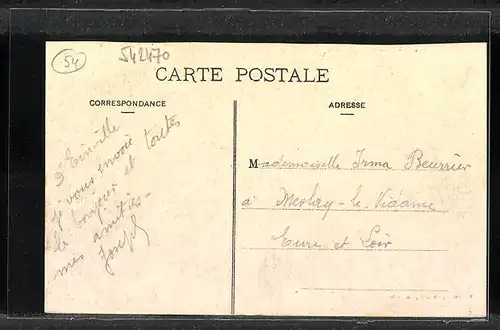 54
542470
CARTE POSTALE
CORRESPONDANCE
ADRESSE
D'Einville
je vous envoie
le bonjour et toutes
mes amitiés -
Joseph
Mademoiselle Irma Beurrier
à Meslay-le-Vidame
Eure et Loir